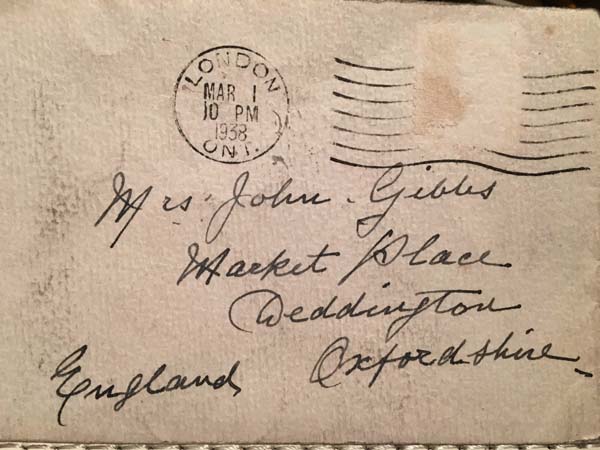 LONDON
MAR 1
10 PM
1938
ONT.
Mrs. John Gibbs
Market Place
Deddington
Oxfordshire
England